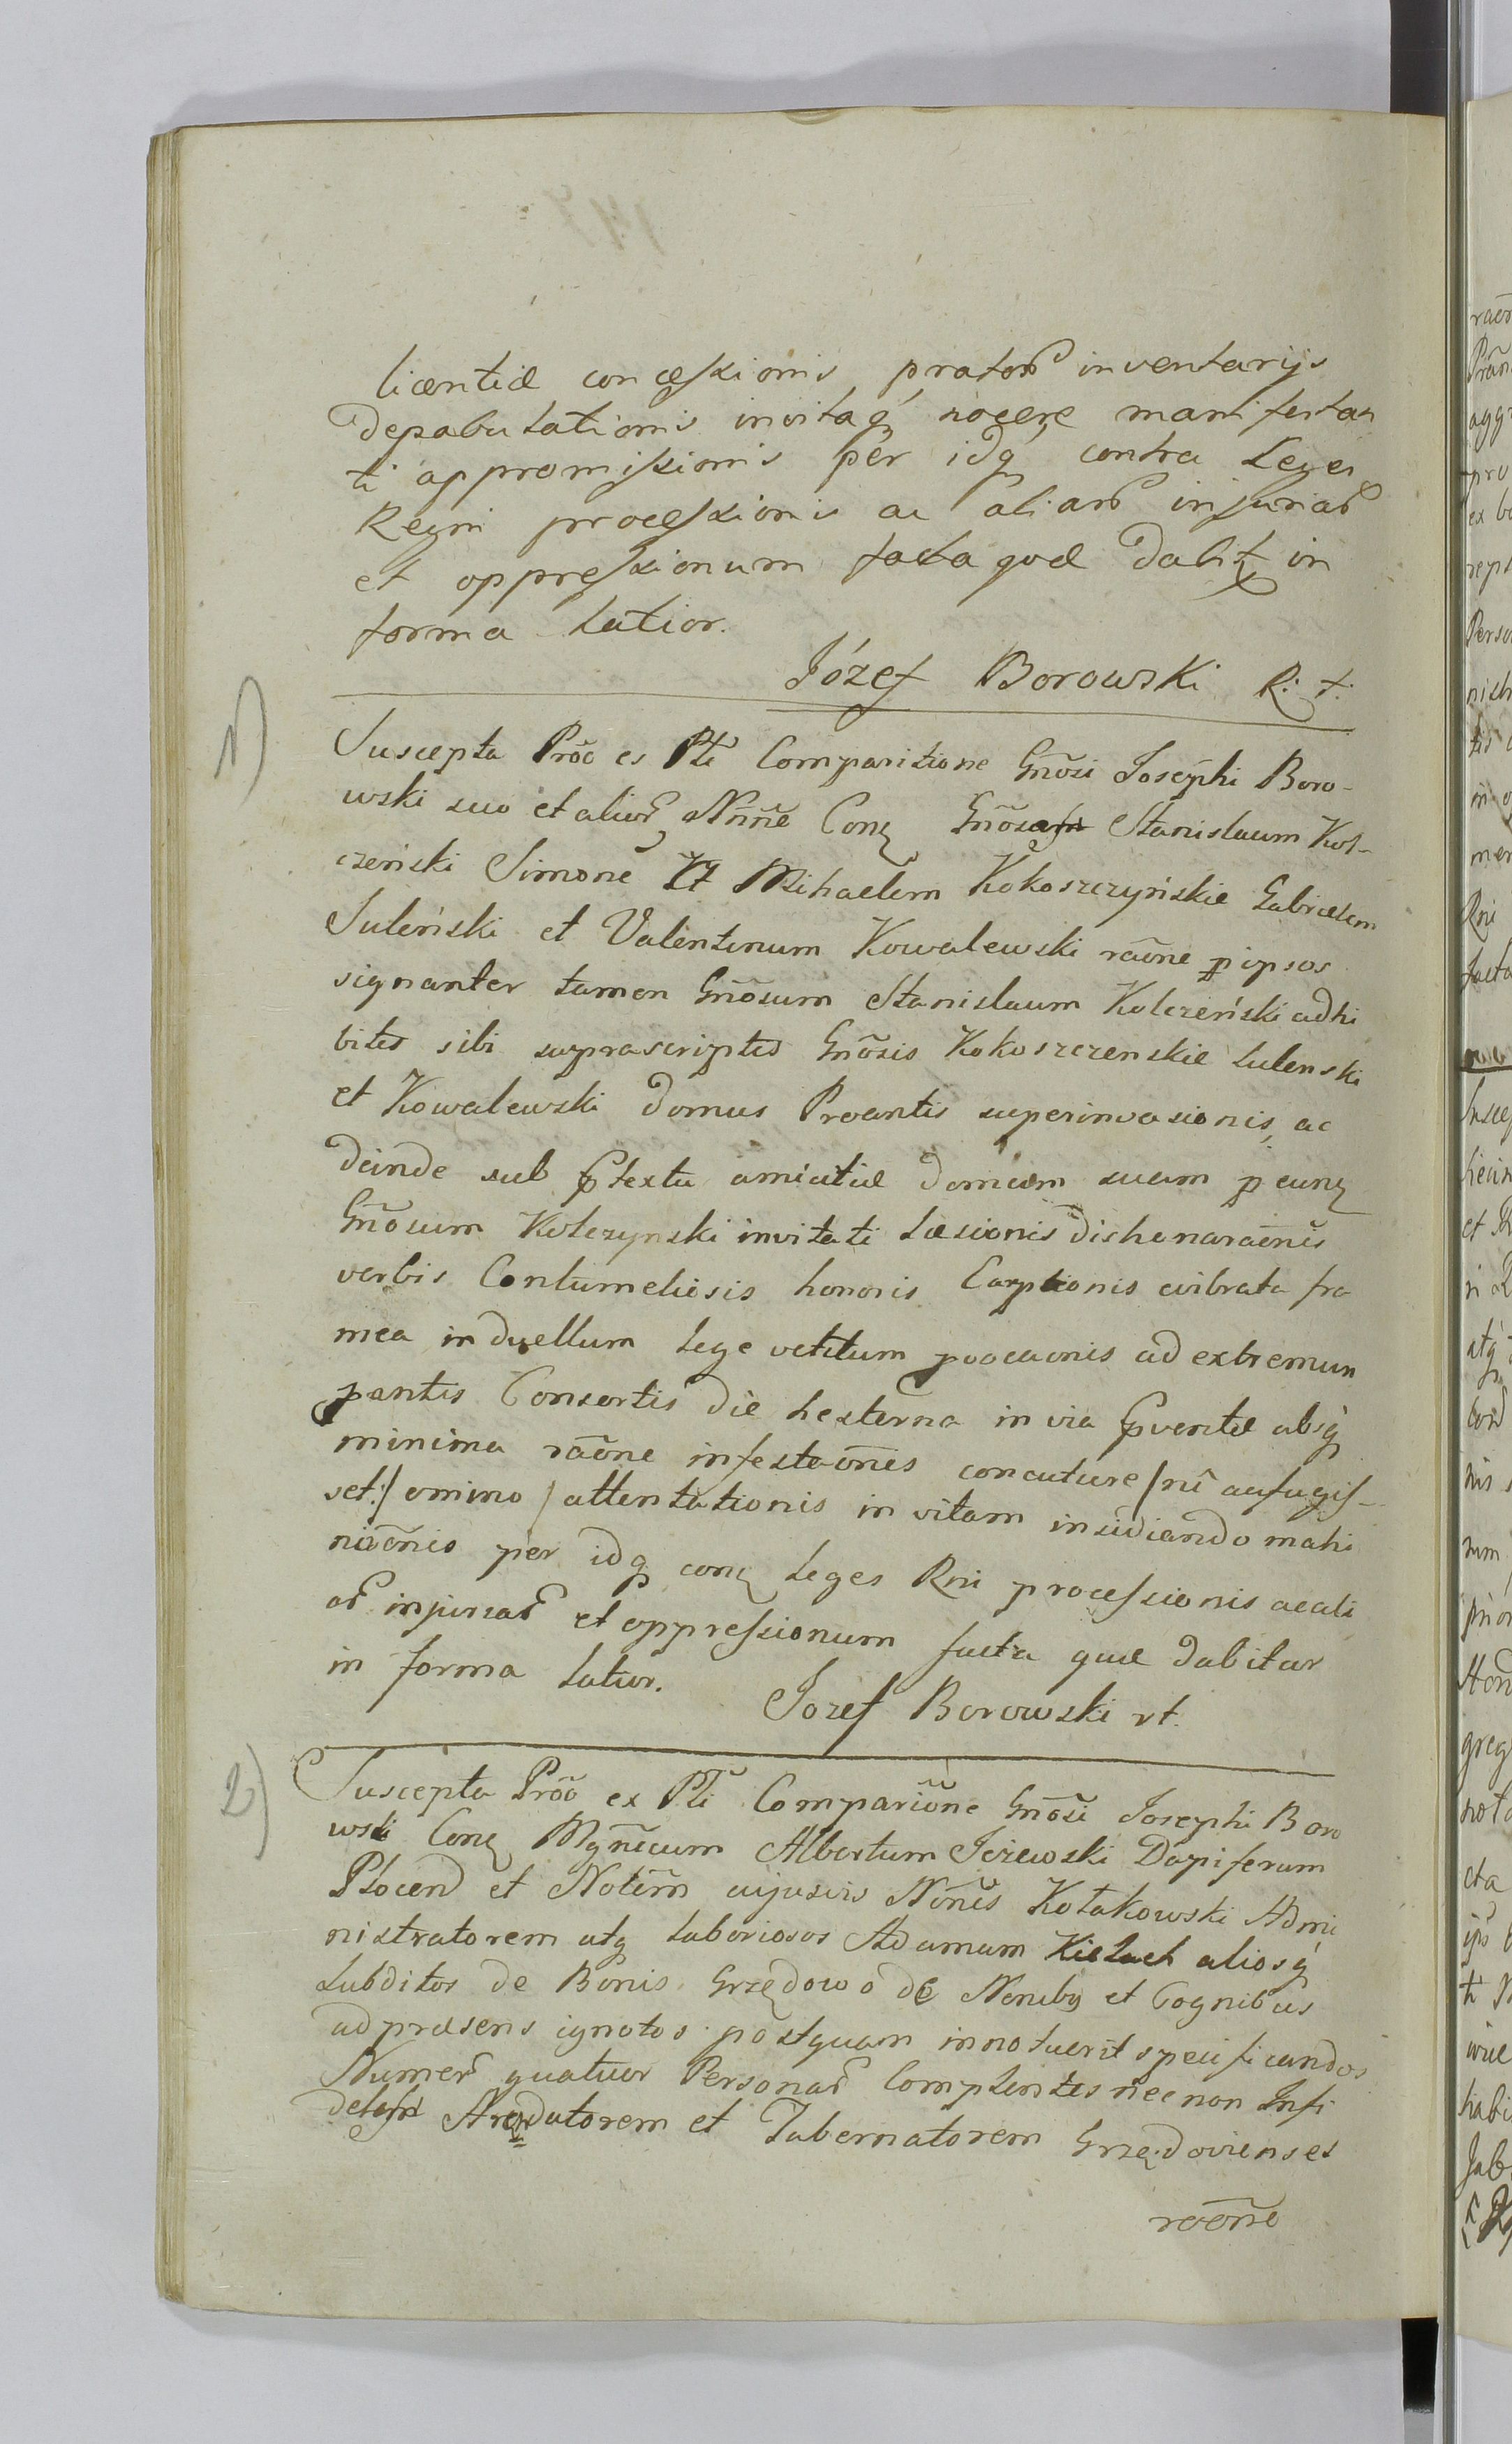 licentiæ concessionis pratorũ inventarijs
depabulationis invitaq́ nocere manifestan
ti appromissionis per idq́ contra Leges
Regni processionis ac aliarũ injuriarũ
et oppressionum facta quæ dabitr in
forma latior.
Józef Borowski R: t:
1)
Suscepta Prõõ es Pti Comparitione Gnõsi Josephi Boro-
wski suo et aliorũ Nm̃ñe Conţ Gnõsum Stanislaum Kol-
czeński Simone et Mihaelem Kokoszczyńskie Gabrielem
Suleński et Valentinum Kowalewski rãõne p ipsos
signanter tamen Gnõsum Stanislaum Kolczeński adhi
bitis sibi suprascriptis Gnõsis Kokoszczenskie Sulenski
et Kowalewski domus Proantis superinvasionis, ac
deinde sub ptextu amicitiæ domum suam p eunţ
Gnõsum Kolczynski invitati Læsionis dishonorãõnis
verbis Contumeliosis honoris Carptionis evibrata fra
mea in duellum Lege vetitum provocaonis ad extremum
pantis Consortis die hesterna in via pventæ absq́
minima rãõne infestaõnis concuture / nî aufugis-
set: / omino / attentationis in vitam insidiando machi
nãõnis per idq conţ Leges Rni processionis ac ali
arũ injuriarũ et oppressionum facta quæ dabitur
in forma latior.
Jozef Borowski rt.
2)
Suscepta Prõõ ex Pti Comparĩõne Gnõsi Josephi Boro
wski Conţ Mgnẽcum Albertum Jeżewski Dapiferum
Płocen et Notẽm cujusvis Nõñis Kołakowski Admi
nistratorem atq laboriosos Adamum Kielach aliosq́
Subditos de Bonis Grzędowo de Nonibs et Cognibus
ad præsens ignotos postquam innotuerit specificandos
Numerũ quatuor Personarũ Complentes nec non Infi
delem Arendatorem et Tabernatorem Grzędovienses
raõne